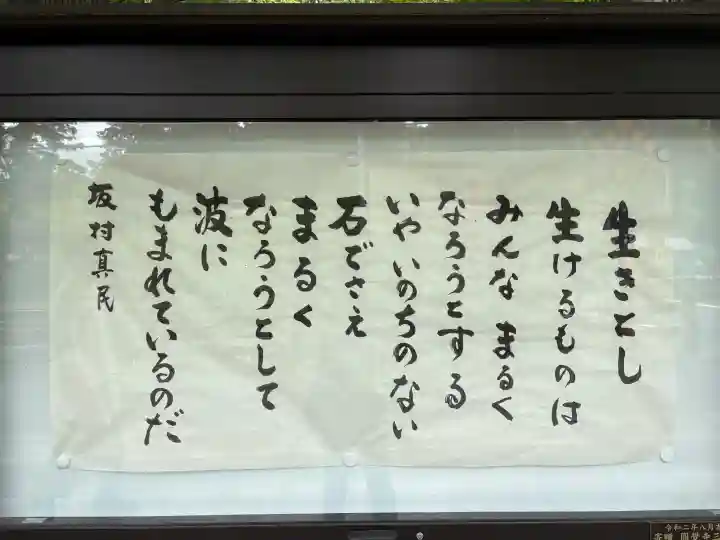 生きとし
生けるものは
みんな まるく
なろうとする
いやいのちのない
石でさえ
まるく
なろうとして
波に
もまれているのだ
坂村真民
令和二年八月
寄贈 圓覚寺